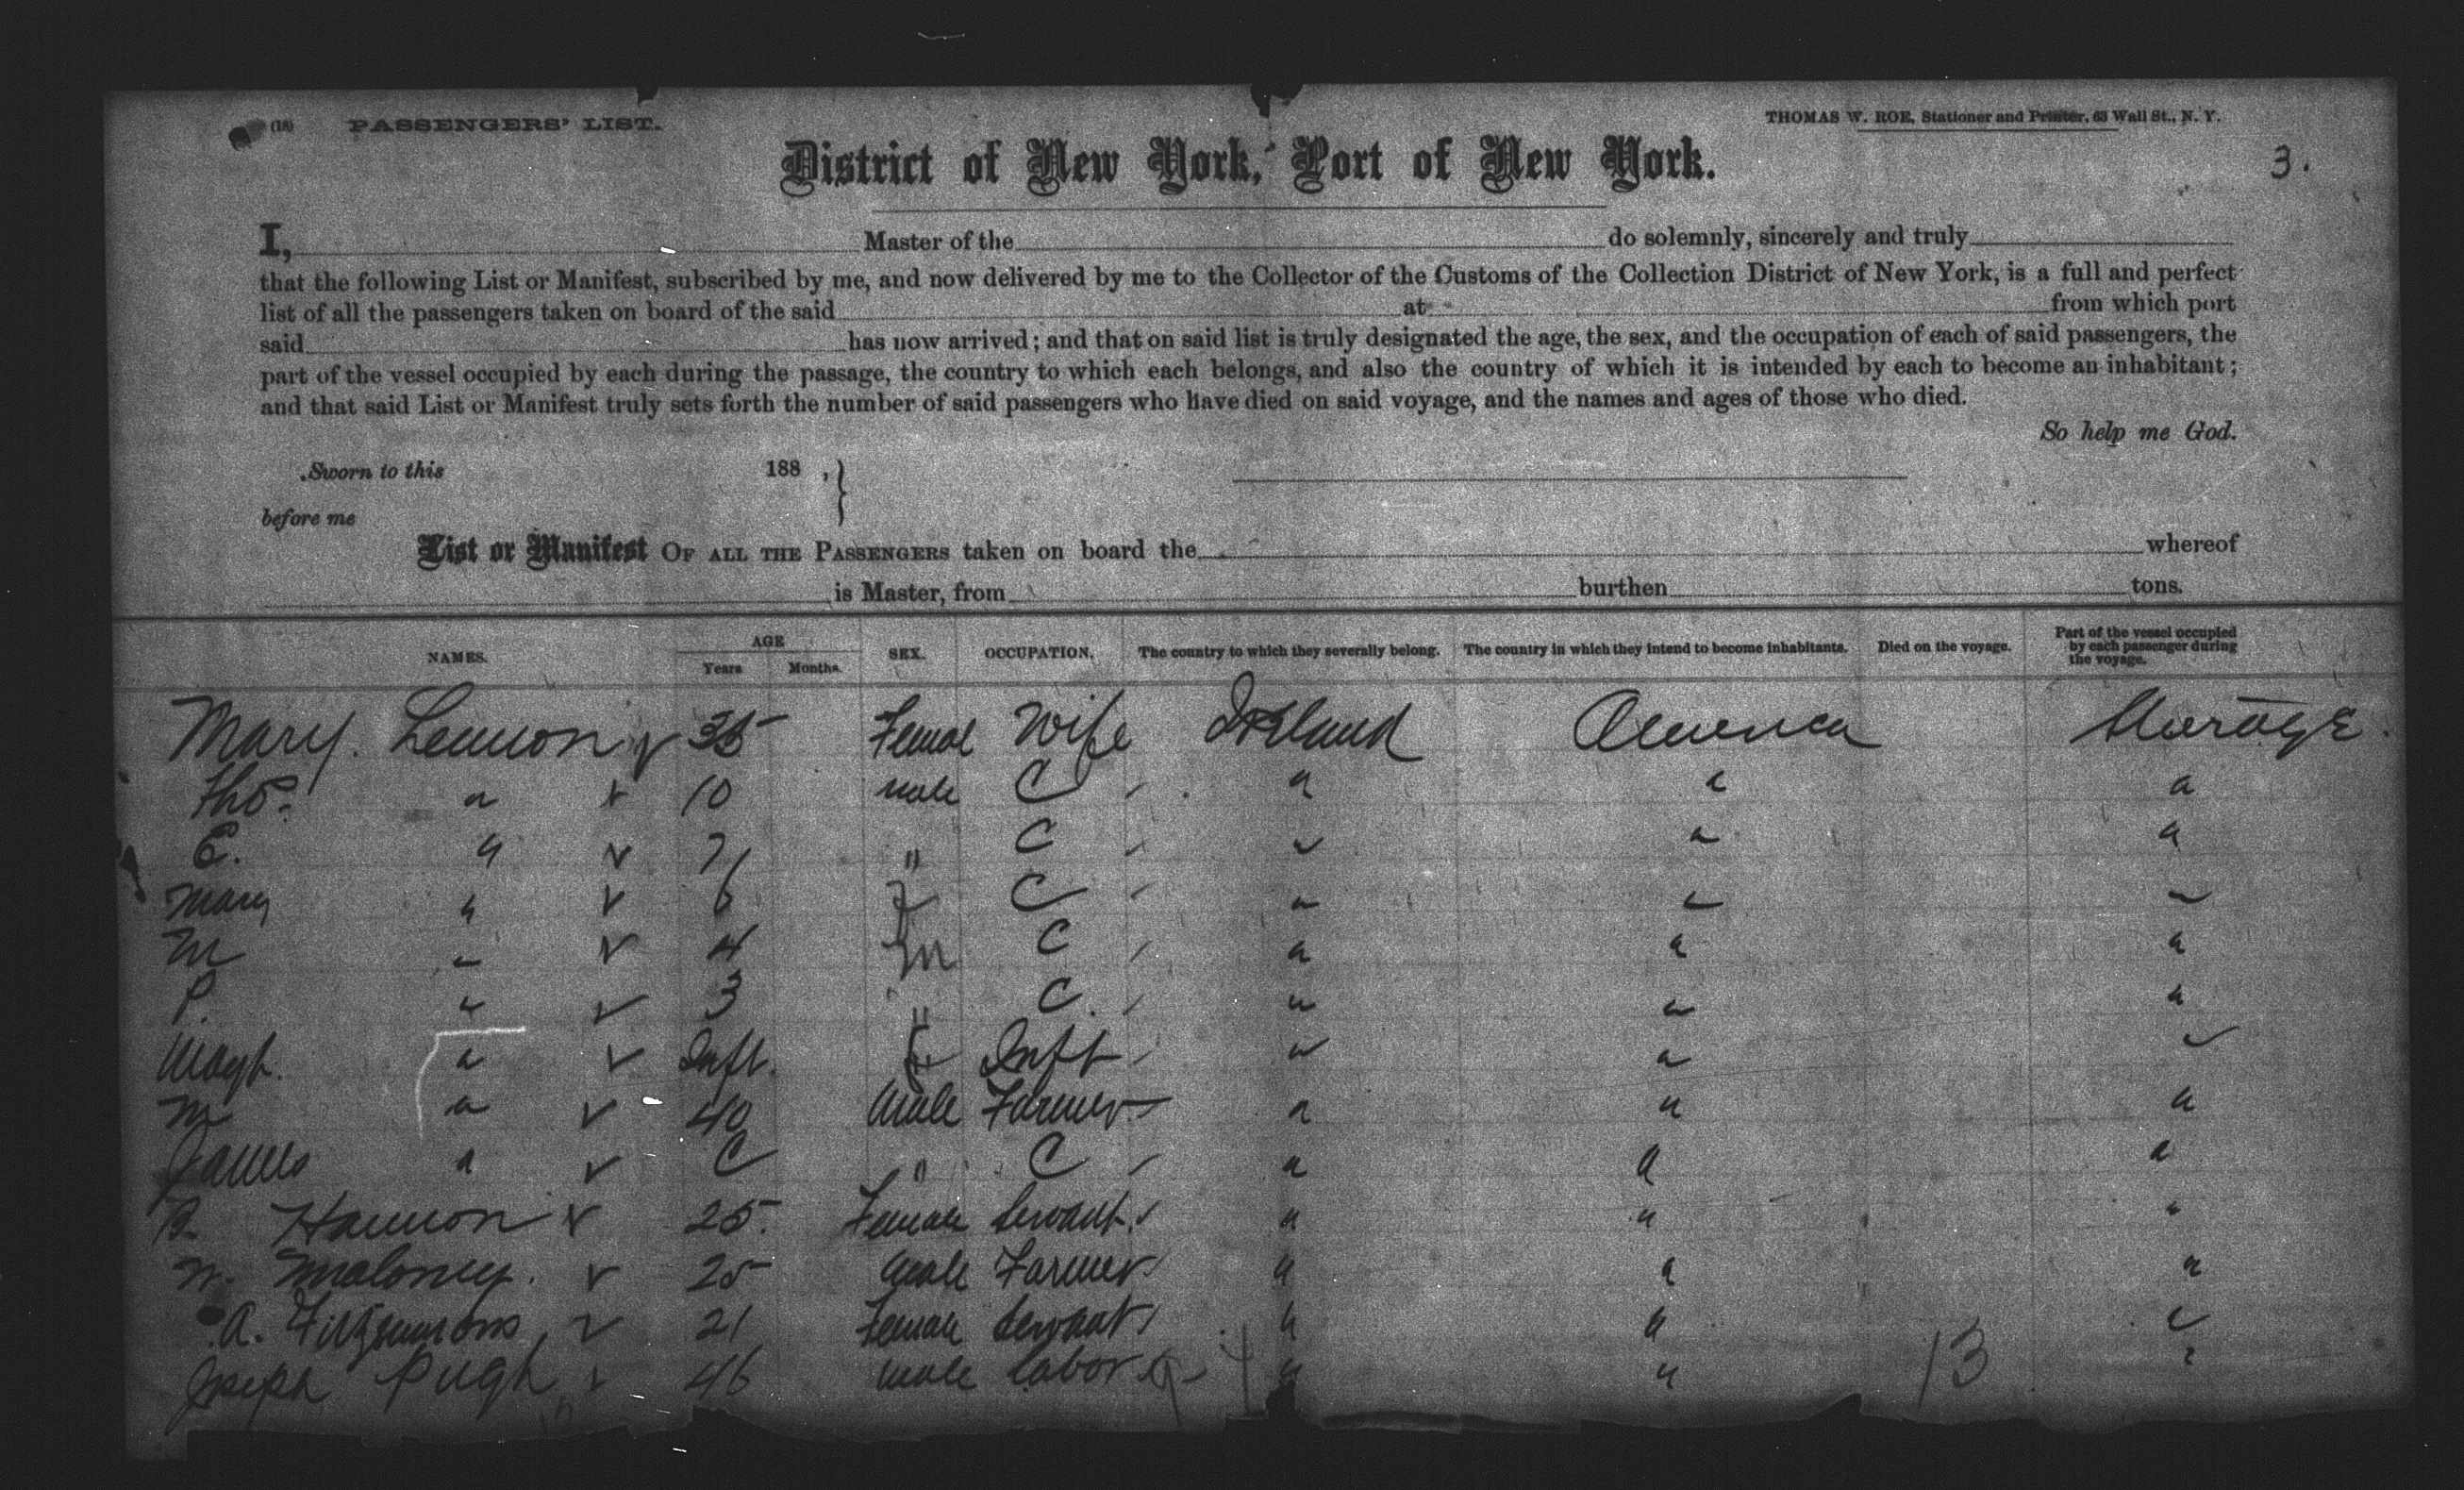 (18) PASSENGERS' LIST. THOMAS W. ROE, Stationer and Printer, 63 Wall St., N. Y.
District of New York, Port of New York. 3.
I, Master of the do solemnly, sincerely and truly
that the following List or Manifest, subscribed by me, and now delivered by me to the Collector of the Customs of the Collection District of New York, is a full and perfect
list of all the passengers taken on board of the said at from which port
said has now arrived; and that on said list is truly designated the age, the sex, and the occupation of each of said passengers, the
part of the vessel occupied by each during the passage, the country to which each belongs, and also the country of which it is intended by each to become an inhabitant;
and that said List or Manifest truly sets forth the number of said passengers who have died on said voyage, and the names and ages of those who died.
So help me God.
Sworn to this 188 ,
before me
List or Manifest OF ALL THE PASSENGERS taken on board the whereof
is Master, from burthen tons.
NAMES. AGE Years Months. SEX. OCCUPATION. The country to which they severally belong. The country in which they intend to become inhabitants. Died on the voyage. Part of the vessel occupied by each passenger during the voyage.
Mary. Lennon 35 Femal Wife Ireland America Steerage.
Tho⁠s. " 10 male C " " "
E. " 7 " C " " "
Mary " 6 F C " " "
M " 4 M C " " "
P. " 3 " C. " " "
" Inft. F Inft " " "
M " 40 Male Farmer " " "
James " C " C " " "
Hannon 25. Female Servant " " "
Maloney. 25 Male Farmer " " "
A. Fitzsimons 21 Female Servant " " "
Joseph Pugh 46 male labor " " "
13